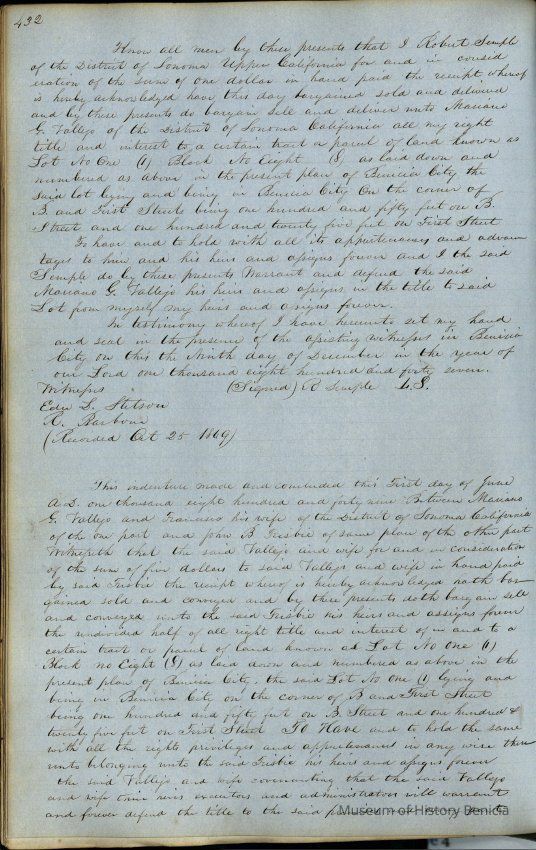 432
Know all men by these presents that I Robert Semple
of the District of Sonoma Upper California for and in consid
eration of the sum of one dollar in hand paid the receipt whereof
is hereby acknowledged have this day bargained sold and delivered
and by these presents do bargain sell and deliver unto Mariano
G. Vallejo of the District of Sonoma California all my right
title and interest to a certain tract a parcel of land known as
Lot No One (1) Block No Eight (8) as laid down and
numbered as above in the present plan of Benicia City the
said lot lying and being in Benicia City On the corner of
B. and First Streets being one hundred and fifty feet on B.
Street and one hundred and twenty five feet on First Street
To have and to hold with all its appurtenances and advan
tages to him and his heirs and assigns forever and I the said
Semple do by these presents Warrant and defend the said
Mariano G. Vallejo his heirs and assigns in the title to said
Lot from myself my heirs and assigns forever.
In testimony whereof I have hereunto set my hand
and seal in the presence of the witnesses in Benicia
City on this the Ninth day of December in the year of
our Lord one thousand eight hundred and forty seven.
Witnesses (Signed) R Semple L.S.
Edw L. Stetson
R. Barbour
(Recorded Oct 25 1869)
This indenture made and concluded this First day of June
A.D. one thousand eight hundred and forty nine Between Mariano
G. Vallejo and Francisca his wife of the District of Sonoma California
of the one part and John B Frisbie of same place of the other part
Witnesseth that the said Vallejo and wife for and in consideration
of the sum of five dollars to said Vallejo and wife in hand paid
by said Frisbie the receipt whereof is hereby acknowledged hath bar
gained sold and conveyed and by these presents doth bargain sell
and conveyed unto the said Frisbie his heirs and assigns forever
the undivided half of all right title and interest of in and to a
certain tract or parcel of land known as Lot No One (1)
Block no Eight (8) as laid down and numbered as above in the
present plan of Benicia City. the said Lot No One (1) lying and
being in Benicia City on the corner of B and First Street
being one hundred and fifty feet on B. Street and one hundred &
twenty five feet on First Street To Have and to hold the same
with all the rights privileges and appurtenances in any wise there
unto belonging unto the said Frisbie his heirs and assigns forever
the said Vallejo and wife covenanting that the said Vallejo
and wife their heirs executors and administrators will warrant
and forever defend the title to the said
Museum of History Benicia